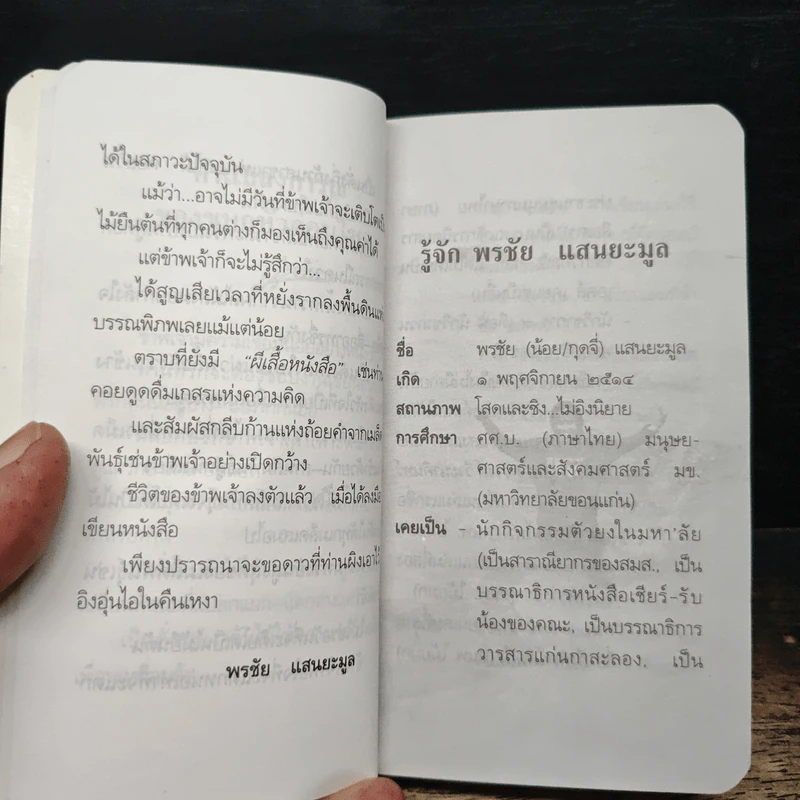 ได้ในสภาวะปัจจุบัน
แม้ว่า...อาจไม่มีวันที่ข้าพเจ้าจะเติบโต
ไม้ยืนต้นที่ทุกคนต่างก็มองเห็นถึงคุณค่าได้
แต่ข้าพเจ้าก็จะไม่รู้สึกว่า...
ได้สูญเสียเวลาที่หยั่งรากลงพื้นดิน
บรรณพิภพเลยแม้แต่น้อย
ตราบที่ยังมี "ผีเสื้อหนังสือ" เช่นท่าน
คอยดูดดื่มเกสรแห่งความคิด
และสัมผัสกลีบก้านแห่งถ้อยคำจากเมล็ด
พันธุ์เช่นข้าพเจ้าอย่างเปิดกว้าง
ชีวิตของข้าพเจ้าลงตัวแล้ว เมื่อได้ลงมือ
เขียนหนังสือ
เพียงปรารถนาจะขอดาวที่ท่านผิงเอาไว้
อิงอุ่นไอในคืนเหงา
พรชัย แสนยะมูล
รู้จัก พรชัย แสนยะมูล
ชื่อ พรชัย (น้อย/กุดจี่) แสนยะมูล
เกิด ๑ พฤศจิกายน ๒๕๑๔
สถานภาพ โสดและซิง...ไม่อิงนิยาย
การศึกษา ศศ.บ. (ภาษาไทย) มนุษย-
ศาสตร์และสังคมศาสตร์ มข.
(มหาวิทยาลัยขอนแก่น)
เคยเป็น - นักกิจกรรมตัวยงในมหา'ลัย
(เป็นสาราณียากรของสมส., เป็น
บรรณาธิการหนังสือเชียร์-รับ
น้องของคณะ, เป็นบรรณาธิการ
วารสารแก่นกาสะลอง, เป็น